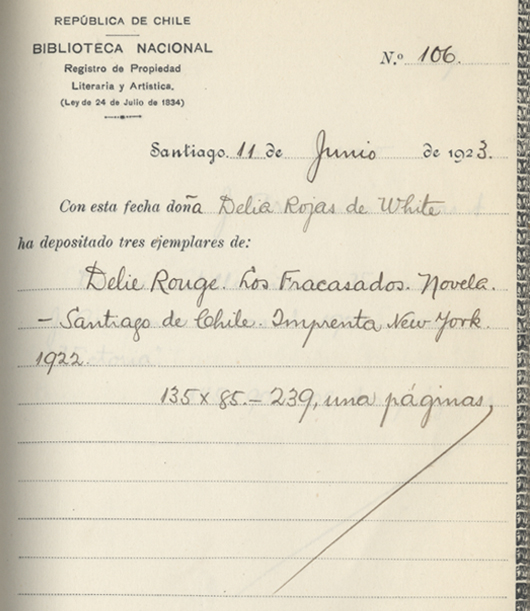 REPÚBLICA DE CHILE
BIBLIOTECA NACIONAL
Registro de Propiedad
Literaria y Artística.
(Ley de 24 de Julio de 1834)
N.º 106.
Santiago. 11 de Junio de 1923.
Con esta fecha doña Delia Rojas de White
ha depositado tres ejemplares de:
Delie Rouge. Los Fracasados. Novela.
– Santiago de Chile. Imprenta New York.
1922.
135 x 85. – 239, una páginas